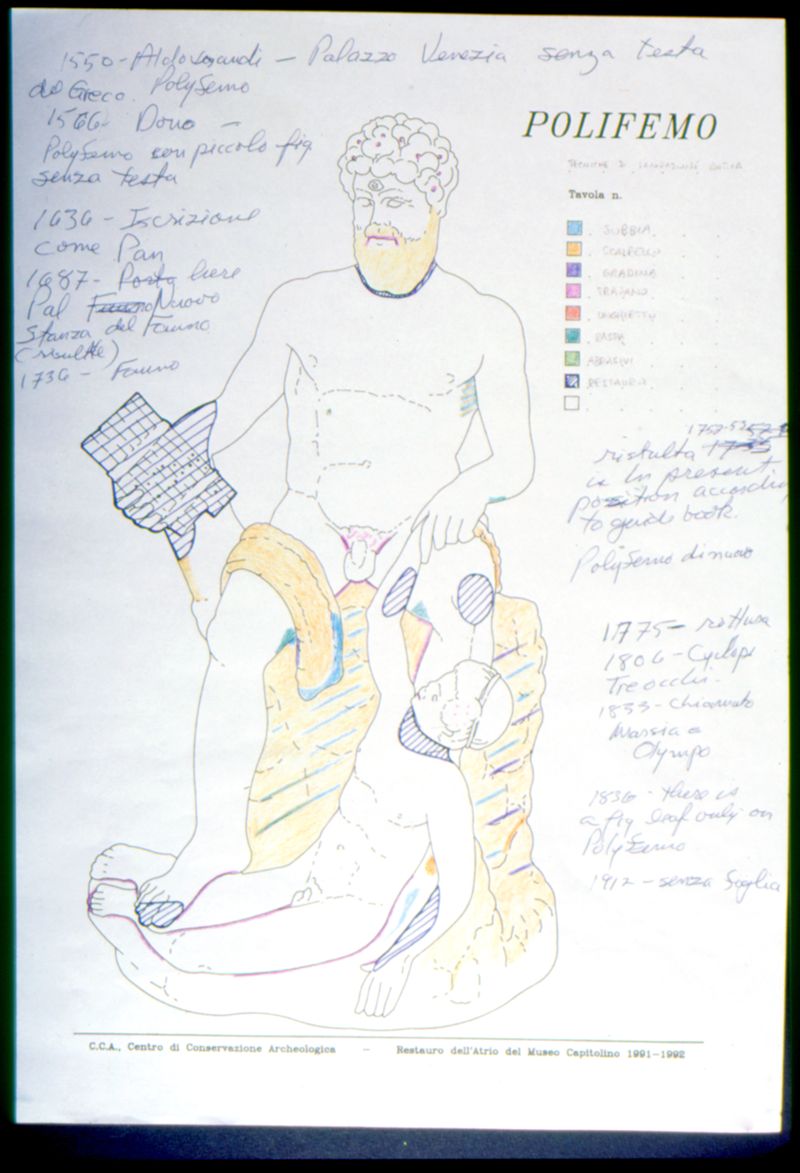 1550-Aldovrandi - Palazzo Venezia senza testa
del Greco. Polyfemo
1566- Dono -
Polyfemo con piccolo fig
senza testa
1636 - Iscrizione
come Pan
1687- Posto here
Pal Nuovo
Stanza del Fauno
1736 - Fauno
POLIFEMO
TECNICHE DI LAVORAZIONE ANTICA
Tavola n.
SUBBIA
SCALPELLO
GRADINA
TRAPANO
UNGHIETTO
RASPA
ABRASIVI
RESTAURO
risulta
is in present
position according
to guide book.
Polyfemo di nuovo
1775- rottura
1806 - Cyclops
Treocchi.
1833- chiamato
Marsia e
Olympo
1836 - there is
a fig leaf only on
Polyfemo
1912 - senza foglia
C.C.A., Centro di Conservazione Archeologica - Restauro dell'Atrio del Museo Capitolino 1991-1992